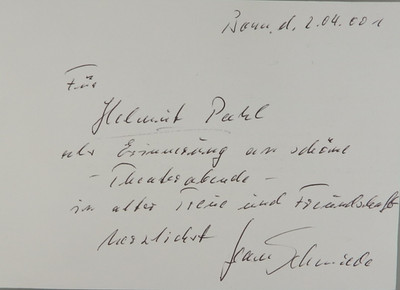 Bonn, d. 2.04.001
Für
Helmut Pahl
als Erinnerung an schöne
- Theaterabende -
in alter Treue und Freundschaft
herzlichst Schmiede